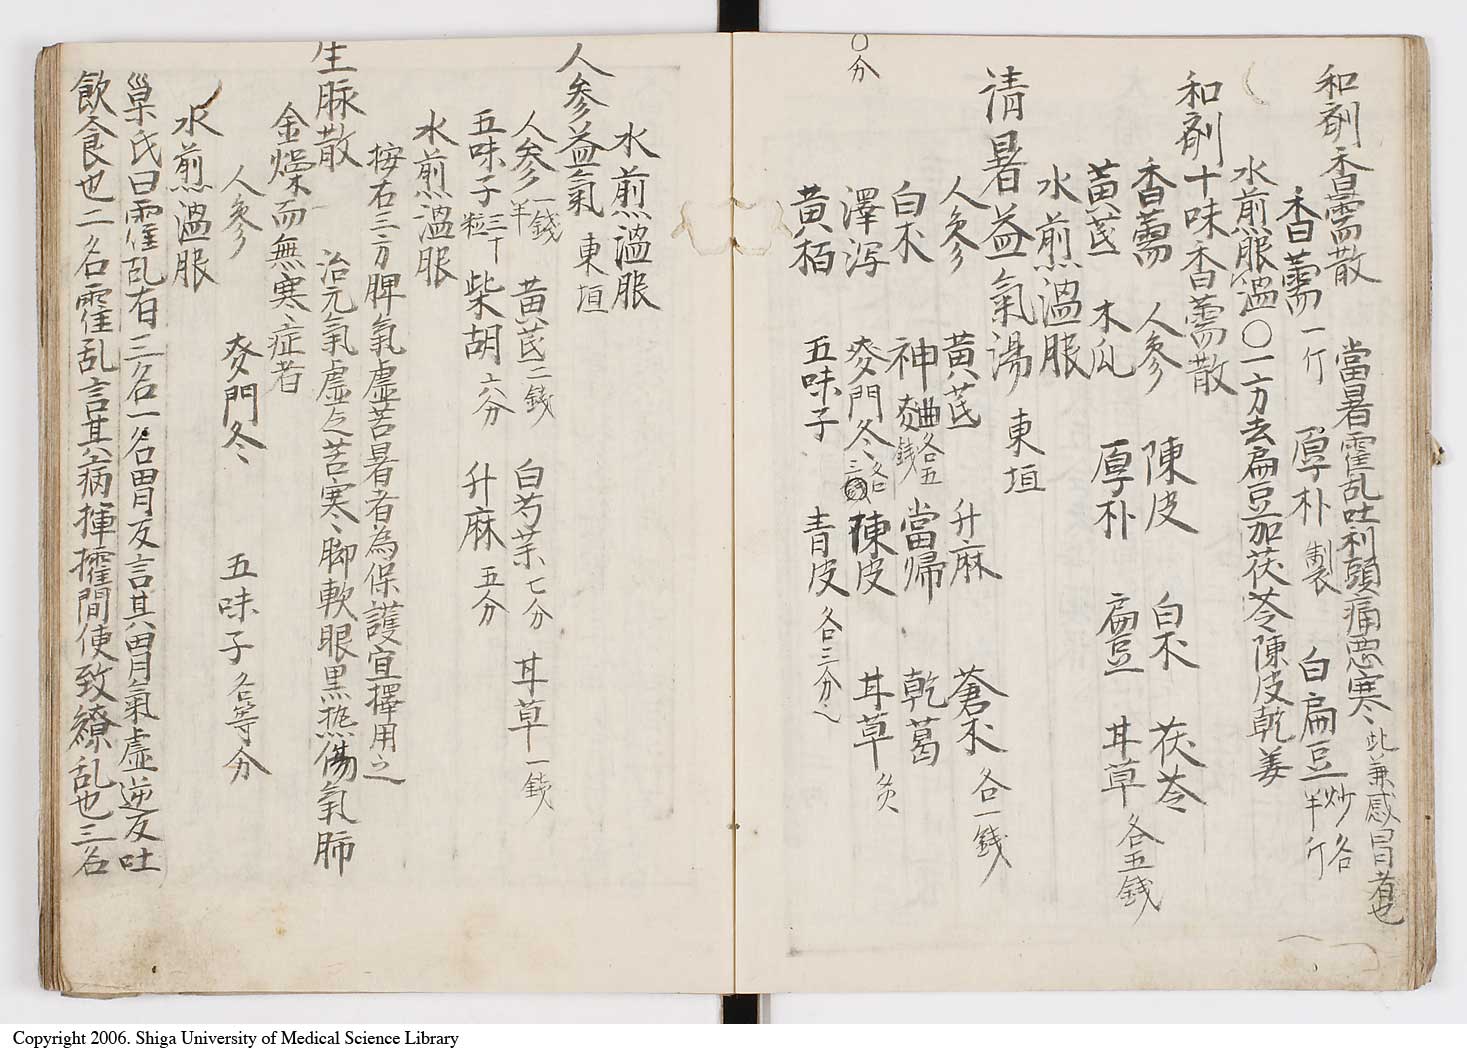 和剤香薷散　當暑霍乱吐利頭痛悪寒〻此兼感冒者也
香薷一斤　厚朴製　白扁豆炒各半斤
水煎服溫〇一方去扁豆加茯苓陳皮乾姜
和剤十味香薷散
香薷　人參　陳皮　白朮　茯苓
黄芪　木瓜　厚朴　扁豆　甘草各五錢
水煎溫服
清暑益氣湯　東垣
人參　黄芪　升麻　蒼朮各一錢
白朮　神麯各五錢　當帰　乾葛
〇分
澤瀉　麥門冬各三　陳皮　甘草炙
黄栢　五味子　青皮各三分
水煎溫服
人參益氣　東垣
人參一錢半　黄芪二錢　白芍藥七分　甘草一錢
五味子三十粒　柴胡六分　升麻五分
水煎溫服
按右三方脾氣虚苦暑者為保護宜擇用之
生脉散　治元氣虚乏苦寒〻脚軟眼黒熱傷氣肺
金燥而無寒〻症者
人參　麥門冬　五味子各等分
水煎溫服
巢氏曰霍乱有三名一名胃反言其胃氣虚逆反吐
飲食也二名霍乱言其病揮攉間使致繚乱也三名
Copyright 2006. Shiga University of Medical Science Library